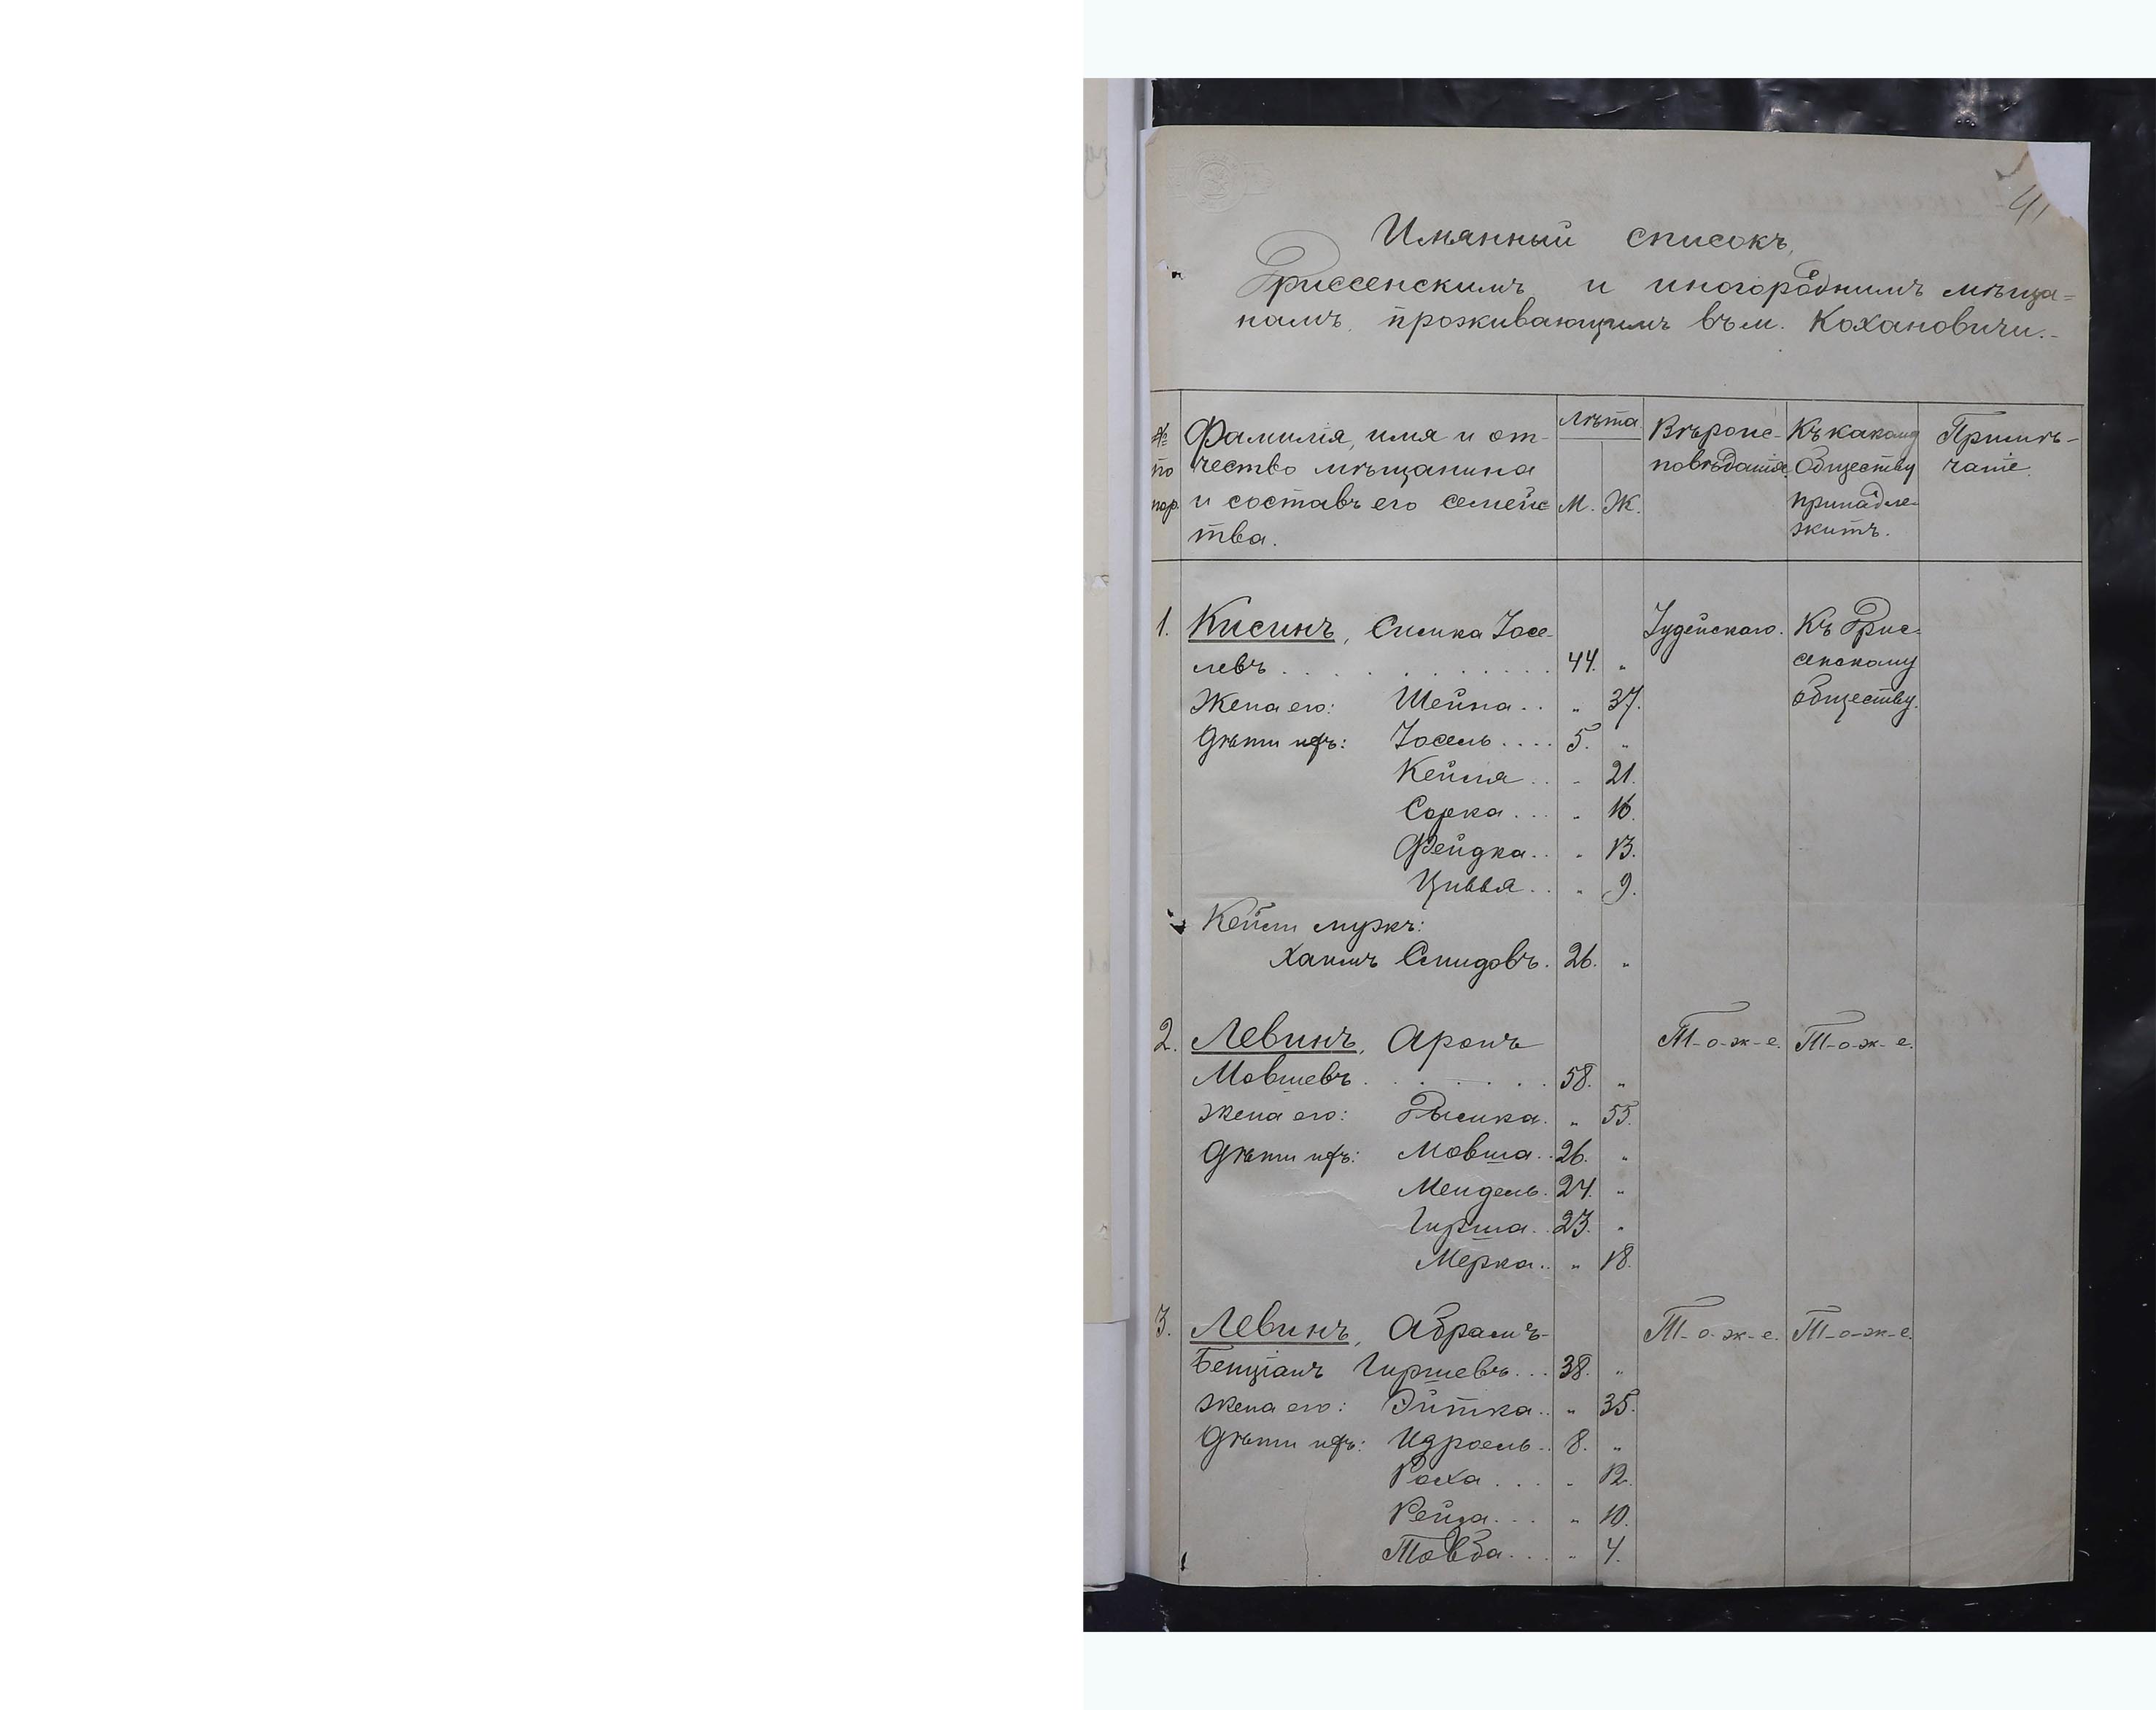 41
Имянный списокъ,
Дриссенскимъ и иногороднимъ мѣща=
намъ, проживающимъ въ м. Кохановичи.-
№ по пор.
Фамилія, имя и от-
чество мѣщанина
и составъ его семейс-
тва.
Лѣта
М. Ж.
Вѣроис-
повѣданія.
Къ какому
обществу
принадле-
житъ.
Примѣ-
чаніе.
1. Кисинъ, Симка Іосе- Іудейскаго. Къ Дрис-
левъ . . . . . . . . . 44. „ сенскому
Жена его: Шейна . . „ 37. обществу.
Дѣти ихъ: Іосель . . . . 5. „
Кейля . . „ 21.
Сорка . . . „ 16.
Фейдка . . „ 13.
Цивья . . „ 9.
Кейли мужъ:
Хаимъ Смидовъ. 26. „
2. Левинъ, Аронъ Т-о-ж-е. Т-о-ж-е.
Мовшевъ . . . . . . 58. „
жена его: Рысика. „ 55.
Дѣти ихъ: Мовша . . 26. „
Мендель. 24. „
Гирша . . 23. „
Мерка . . „ 18.
3. Левинъ, Абрамъ- Т-о-ж-е. Т-о-ж-е.
Бенціанъ Гиршевъ . . . 38. „
жена его: Эйтка . . „ 35.
Дѣти ихъ: Изроель . . 8. „
Расха . . . . „ 12.
Рейза . . . „ 10.
Товба . . . . „ 4.